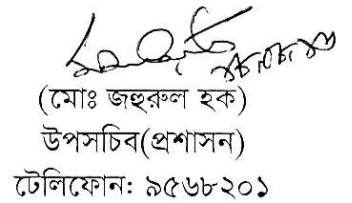 (মোঃ জহুরুল হক)
উপসচিব(প্রশাসন)
টেলিফোন: ৯৫৬৮২০১